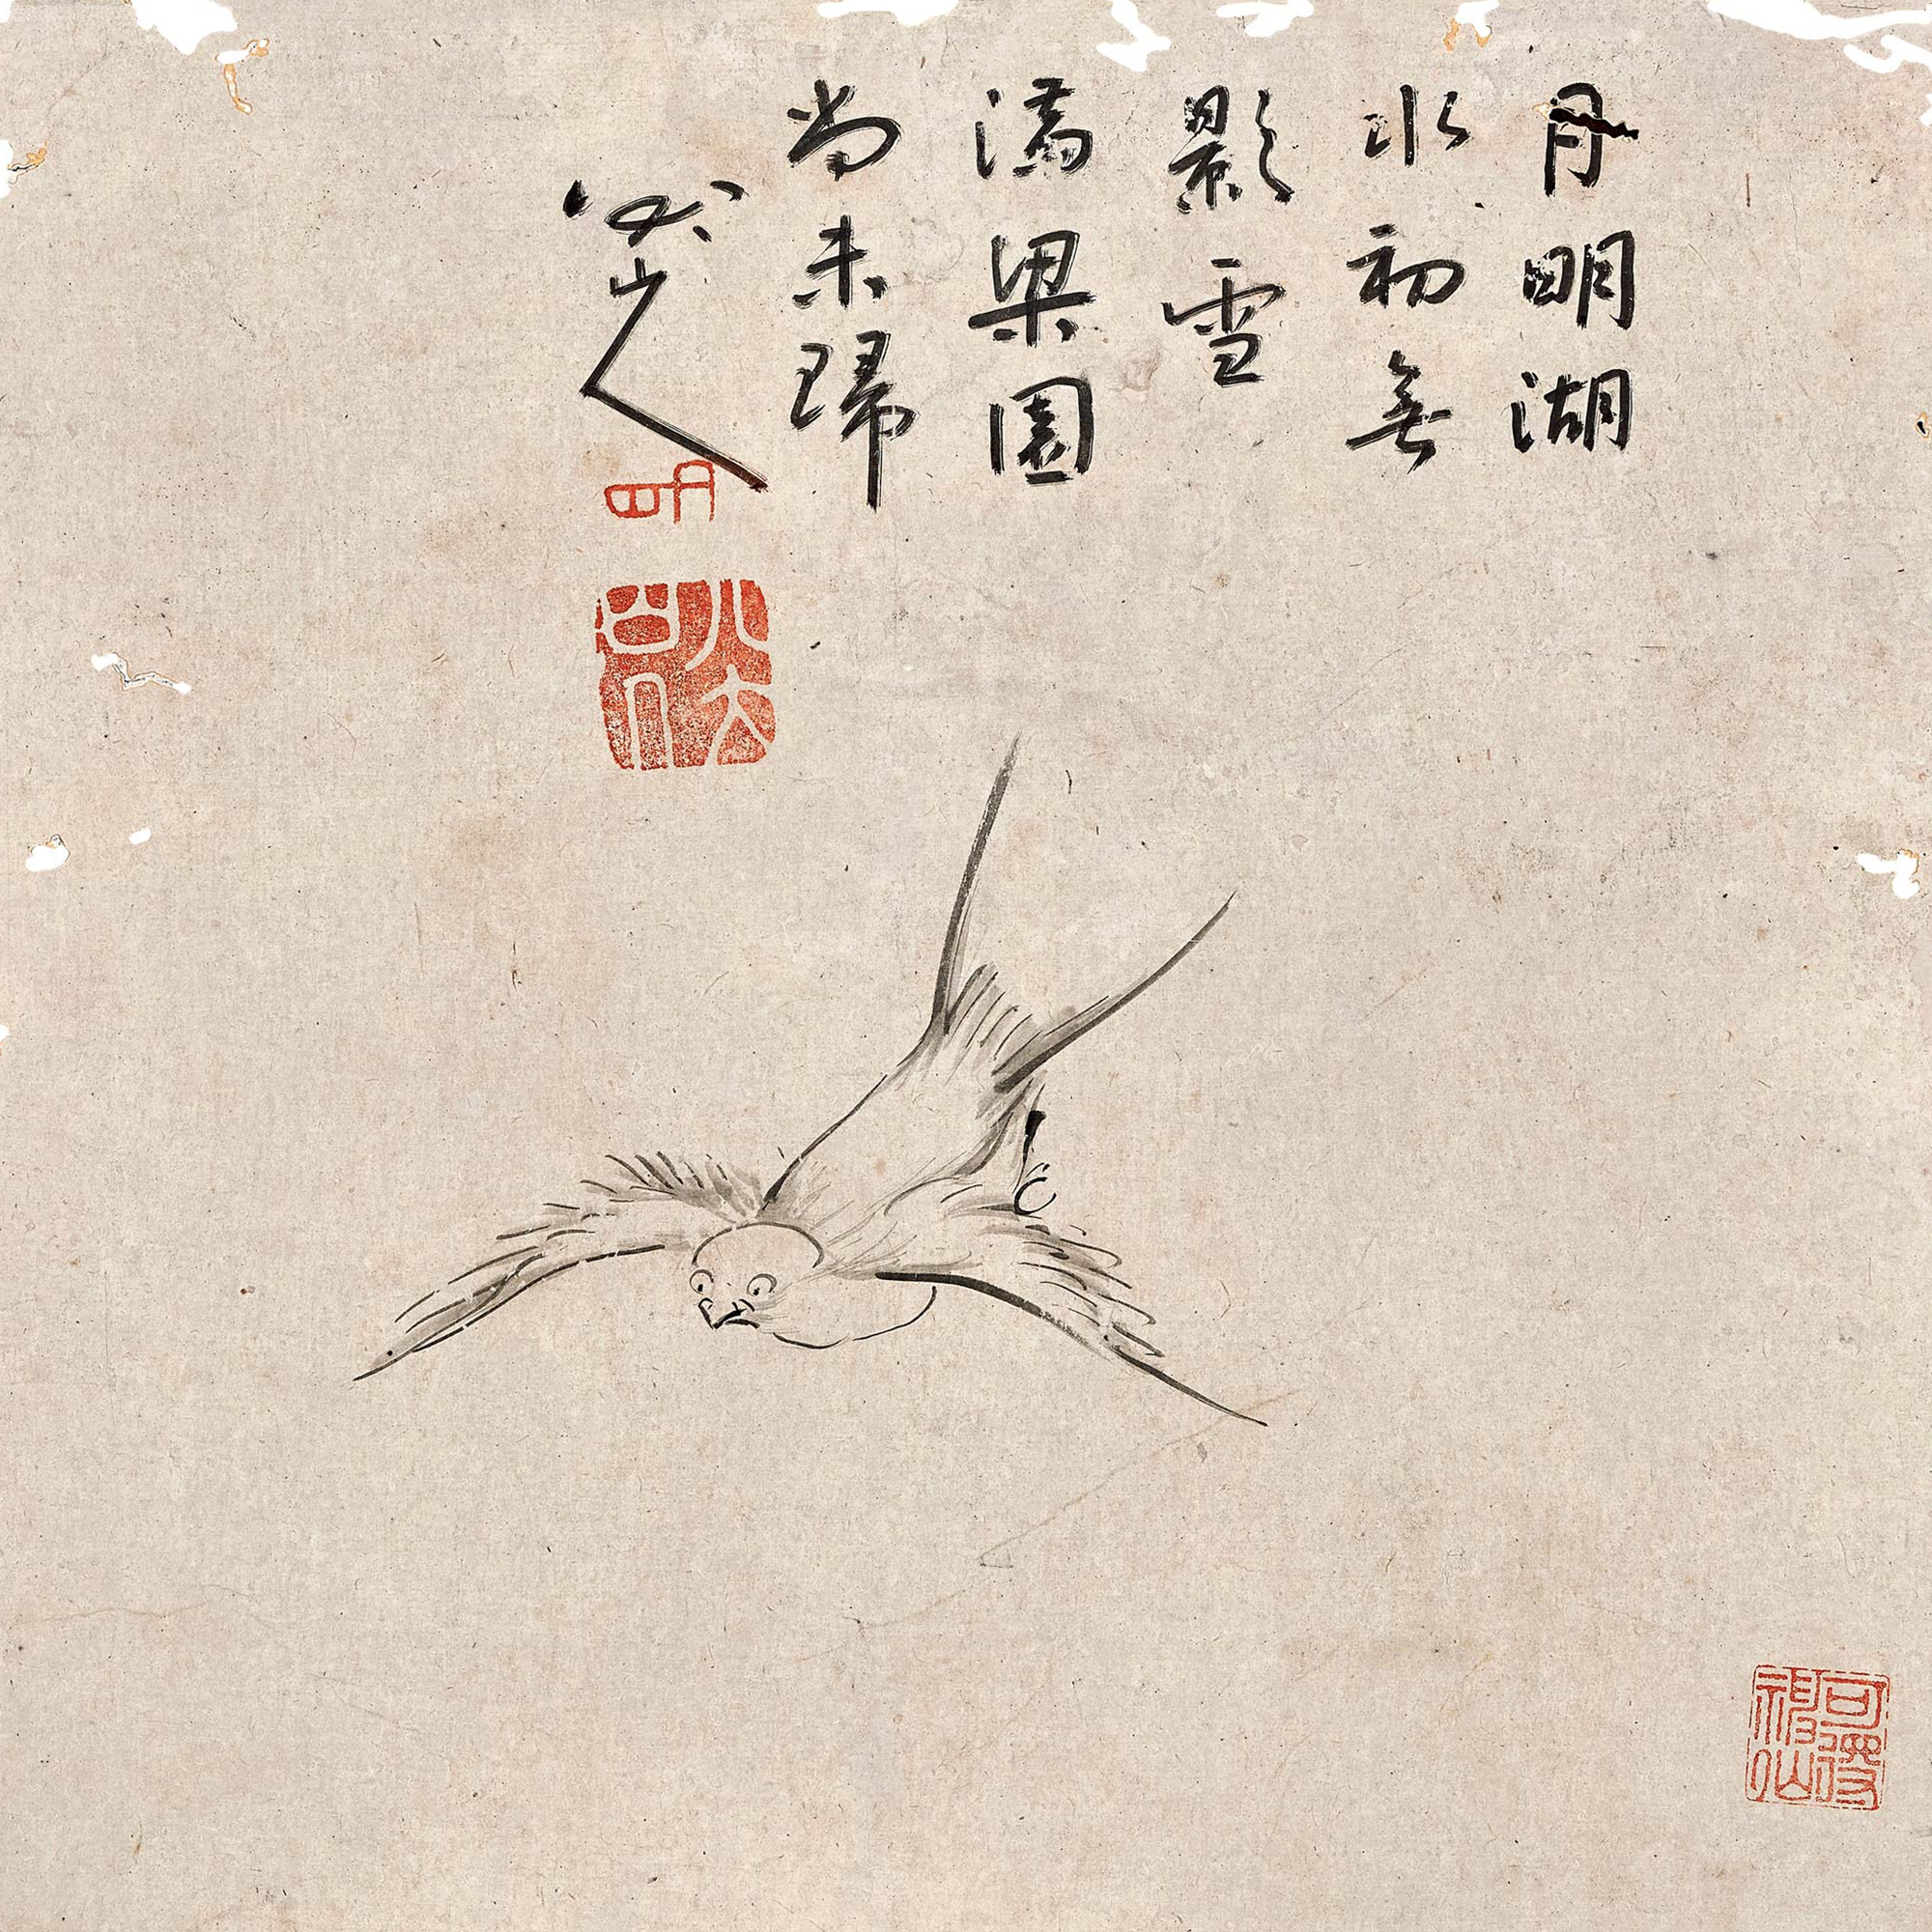 月明湖
水初無
影雪
滿梁園
尚未歸
八大山人
八大山人
可得神仙